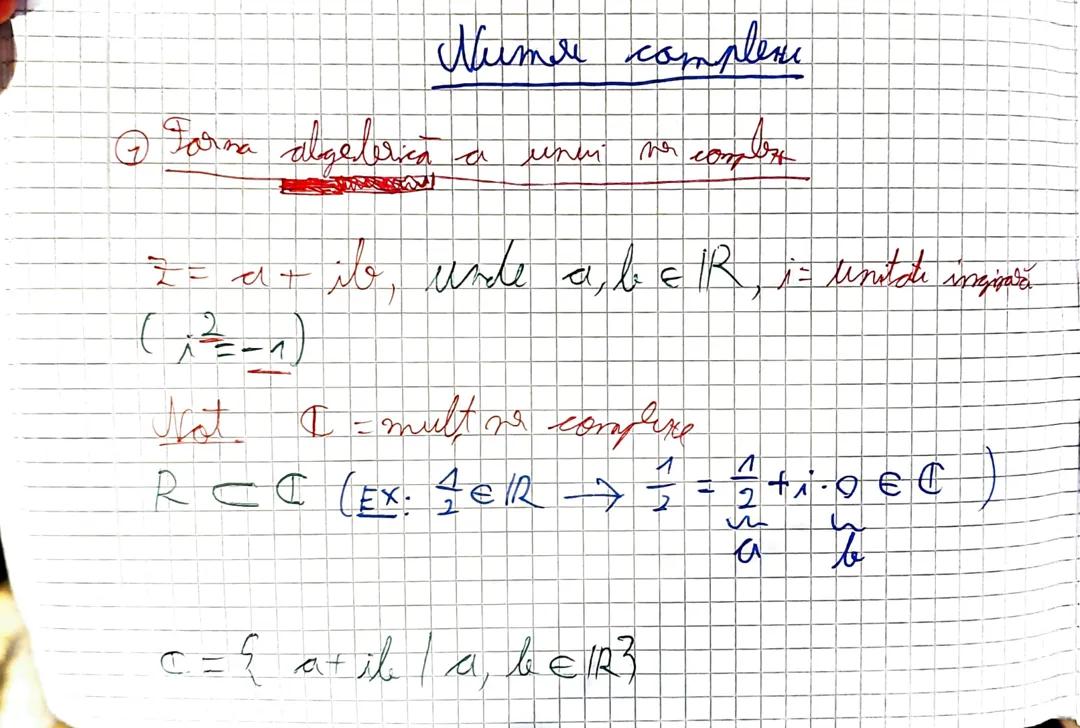 Numere complexe
① Forma algebrică a unui nr complex
z = a + ib, unde a, b ∈ ℝ, i = unitate imaginară
(i² = -1)
Not. ℂ = mulț nr complexe
R ⊂ ℂ (EX: 1/2 ∈ ℝ → 1/2 = 1/2 + i · 0 ∈ ℂ)
a b
ℂ = { a + ib / a, b ∈ ℝ }